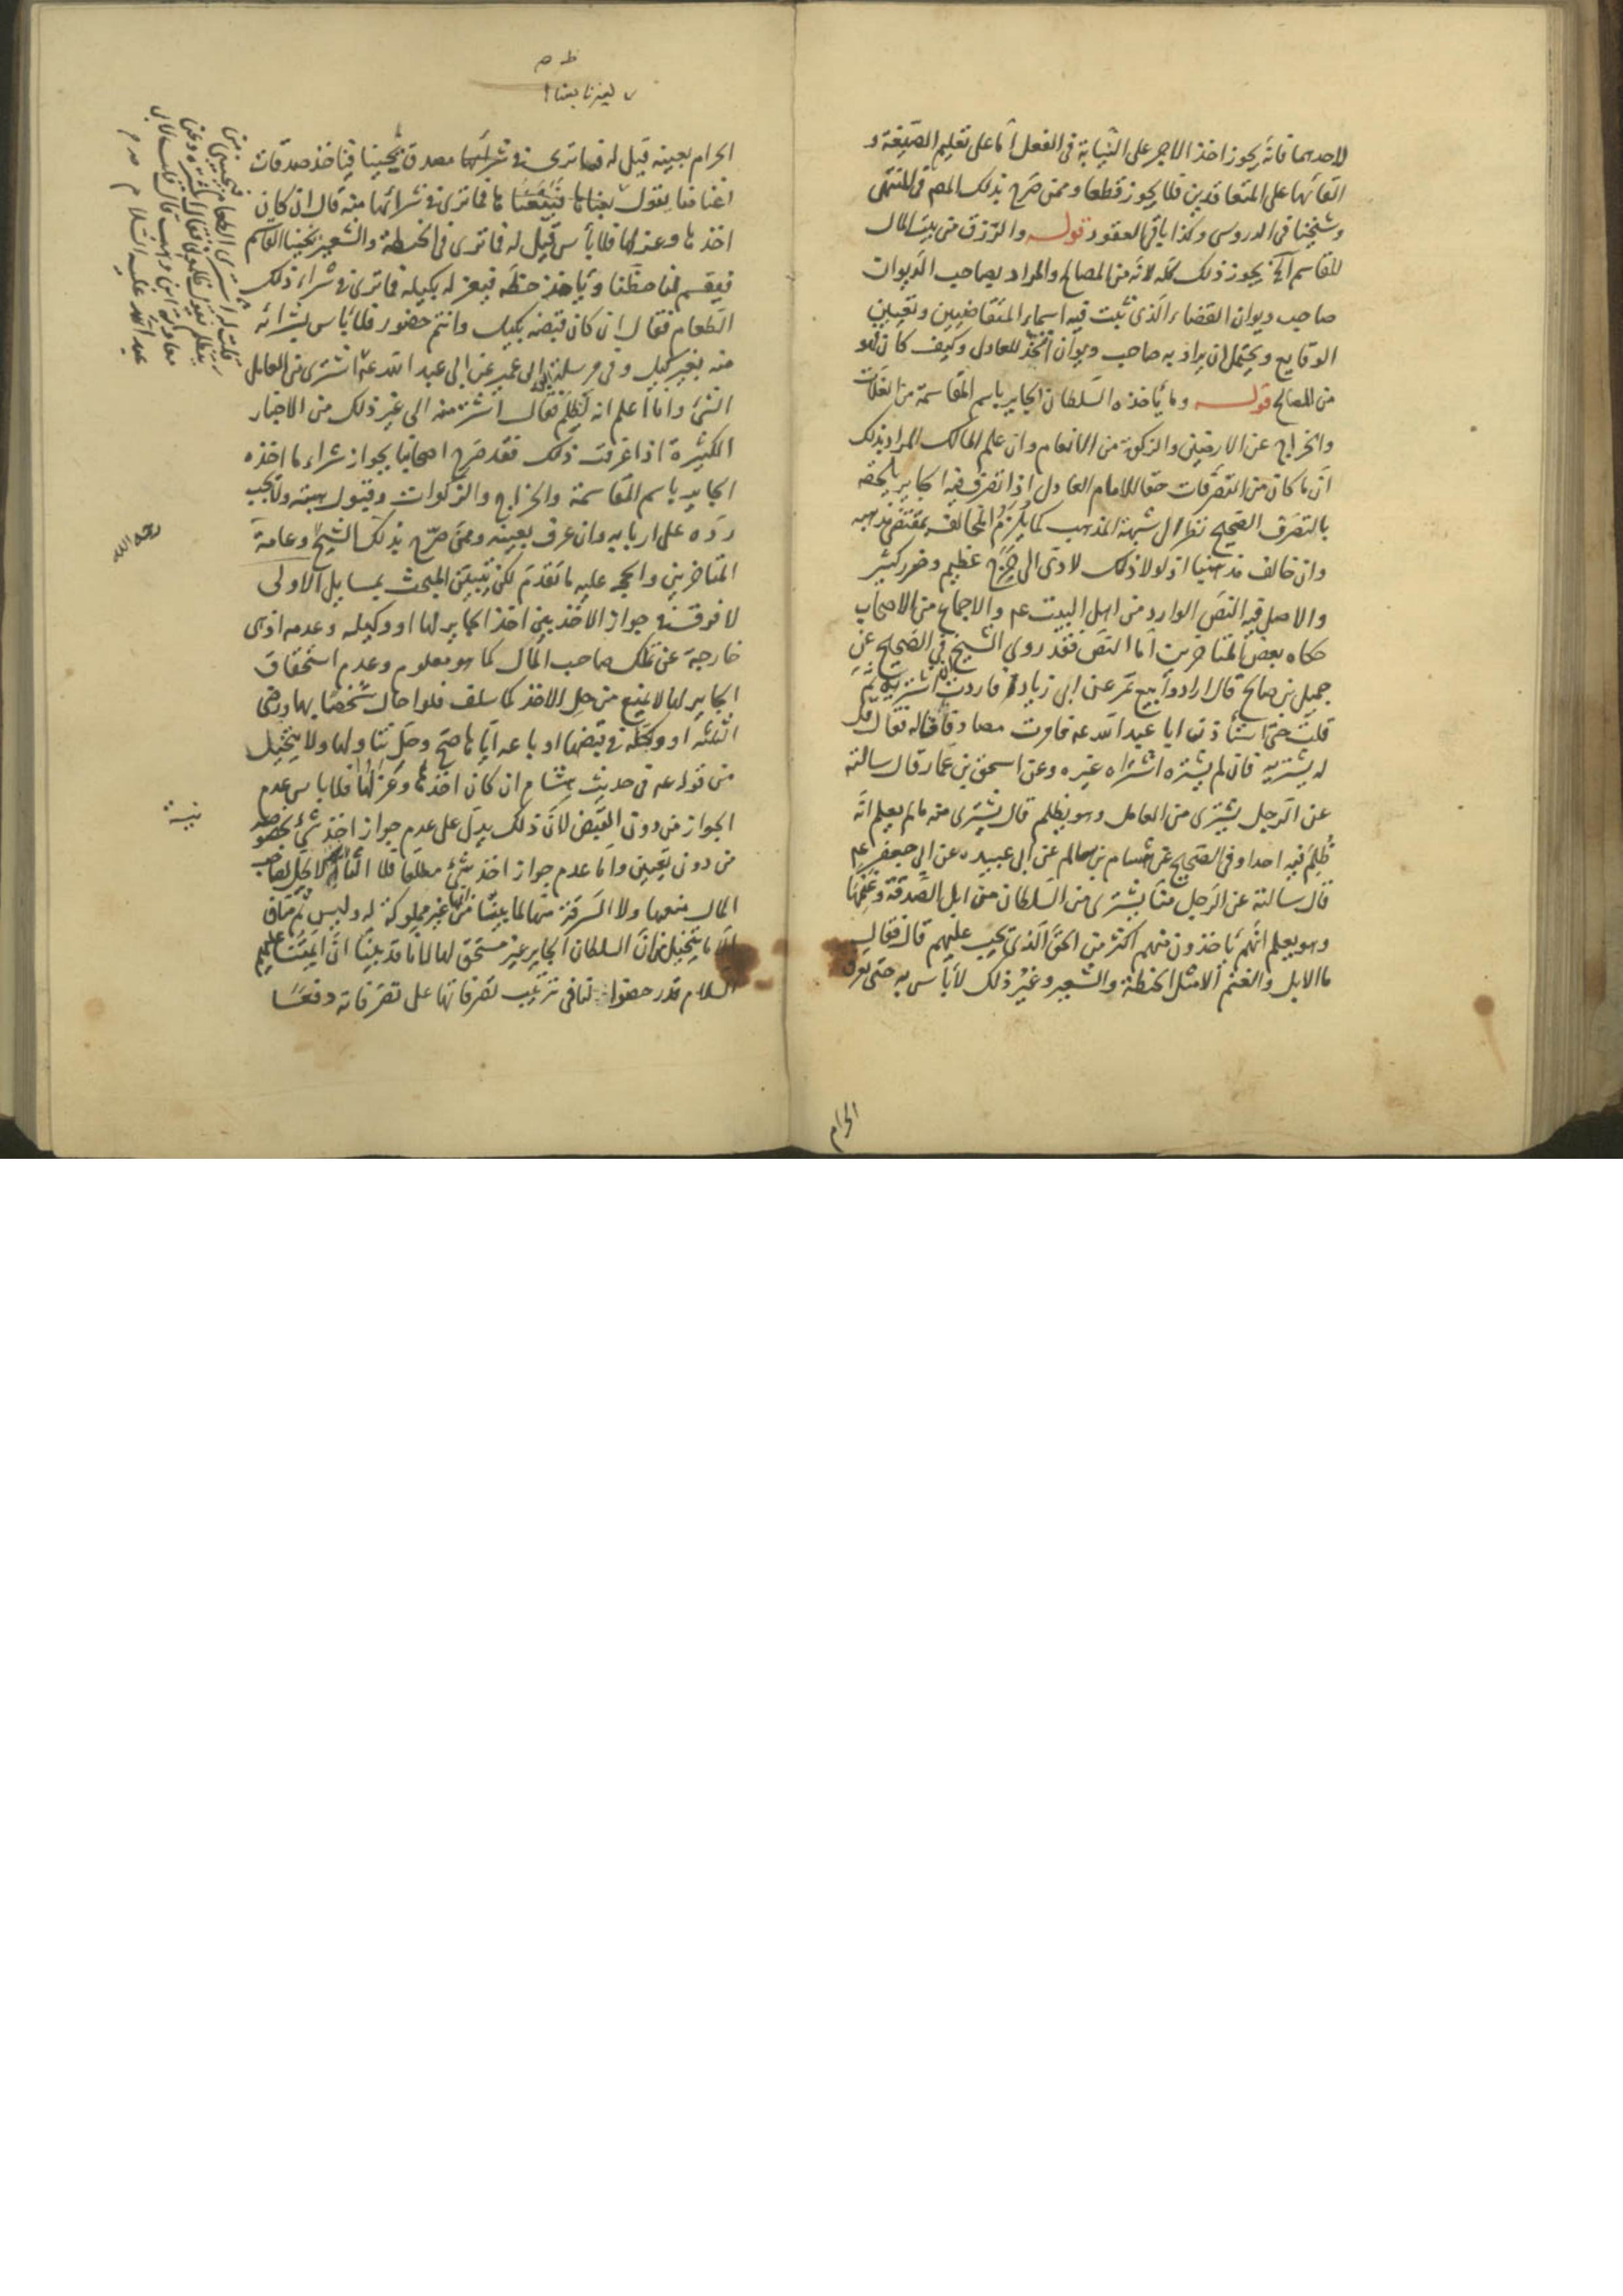 لاحدهما فانّه يجوز اخذ الاجر على النيابة فى الفعل امّا على تعليم الصّيغة و
القائها على المتعاقدين فلا يجوز قطعا وممن صرّح بذلك المص فى المنتهى
وشيخنا فى الدروس وكذا باقى العقود قوله والرّزق من بيت المال
للقاسم آلخ يجوز ذلك كلّه لانّه من المصالح والمراد بصاحب الديوان
صاحب ديوان القضاء الّذى تثبت فيه اسماء المتقاضيين وتعيين
الوقايع ويحتمل ان يراد به صاحب ديوان الجند للعادل وكيف كان فهو
من المصالح قوله وما يأخذه السّلطان الجاير باسم المقاسمة من الغلّات
والخراج عن الارضين والزكوة من الانعام وان علم المالك المراد بذلك
انّ ما كان من التصرّفات حقّا للامام العادل اذا تصرّف فيه الجاير يلحقه
بالتصرّف الصّحيح نظرا الى شبهة المذهب كما يلزم المخالف بمقتضى مذهبه
وان خالف مذهبنا اذ لولا ذلك لادّى الى حرج عظيم وضرر كثير
والاصل فيه النصّ الوارد من اهل البيت عم والاجماع من الاصحاب
حكاه بعض المتاخرين امّا النصّ فقد روى الشيخ فى الصّحيح عن
جميل بن صالح قال ارادوا بيع تمر عين ابى زياد فاردت ان اشتريه ثم
قلت حتى استأذن ابا عبد اللّه عم فامرت مصادفا فساله فقال قل
له يشتريه فان لم يشتره اشتراه غيره وعن اسحق بن عمّار قال سالته
عن الرّجل يشترى من العامل وهو يظلم قال يشترى منه ما لم يعلم انّه
ظُلِمَ فيه احدا وفى الصّحيح عن هشام بن سالم عن ابى عبيده عن ابى جعفر عم
قال سالته عن الرّجل منّا يشترى من السّلطان من ابل الصّدقة وغنمها
وهو يعلم انّهم يأخذون منهم اكثر من الحقّ الّذى يجب عليهم قال فقال
ما الابل والغنم الّا مثل الحنطة والشعير وغير ذلك لا بأس به حتى تعرف
الحرام
الحرام بعينه قيل له فما ترى فى شرائها مصدق يجيئنا فيأخذ صدقات
اغنامنا نقول بعناها فيبيعنا ها فما ترى فى شرائها منه قال ان كان
اخذها وعزلها فلا بأس قيل له فما ترى فى الحنطة والشعير يجيئنا القاسم
فيقسم لنا حظّنا ويأخذ حظّه فيعزله بكيله فما ترى فى شراء ذلك
الطّعام فقال ان كان قبضه بكيل وانتم حضور فلا بأس بشرائه
منه بغير كيل وفى مرسلة ابن ابى عمير عن ابى عبد اللّه عم اشترى من العامل
الشئ وانا اعلم انه يظلم فقال اشتر منه الى غير ذلك من الاخبار
الكثيرة اذا عرفت ذلك فقد صرّح اصحابنا بجواز شراء ما اخذه
الجاير باسم المقاسمة والخراج والزكوات وقبول هبته ولا يجب
ردّه على اربابه وان عرف بعينه وممن صرّح بذلك الشيخ وعامة
المتاخرين والحجه عليه ما تقدم لكن تبيين المبحث بمسايل الاولى
لا فرق فى جواز الاخذ بين اخذ الجاير لها او وكيله وعدمه اذ هى
خارجة عن ملك صاحب المال كما هو معلوم وعدم استحقاق
الجاير لها لا يمنع من حل الاخذ كما سلف فلو احال شخصا بها ورضى
الثلثة او وكله فى قبضها او باعه ايّاها صح وحلّ تناولها ولا يتخيل
من قوله عم فى حديث هشام ان كان اخذها وعزلها فلا باس عدم
الجواز من دون القبض لانّ ذلك يدلّ على عدم جواز اخذ شئ بخصوصه
من دون تعيين وامّا عدم جواز اخذ شئ مطلقا فلا الثانيه لا يحل لصاحب
المال منعها ولا السرقة منها لما بيّنّا من انها غير مملوكة له وليس ثمّ مناف
الّا ما يتخيل من انّ السلطان الجاير غير مستحق لها لانا قد بيّنّا انّ ائمتنا عليهم
السلام قدر حضوا لنا فى ترتيب تصرفاتها على تصرفاته دفعًا
رحمه الله
عبد اللّه عليه السّلام